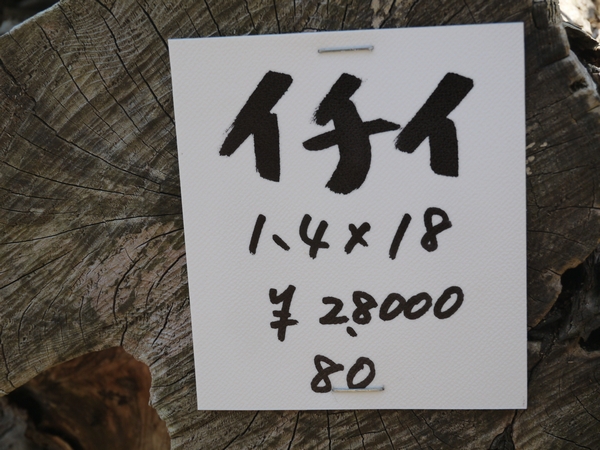 イチイ
1、4×18
¥28000
80